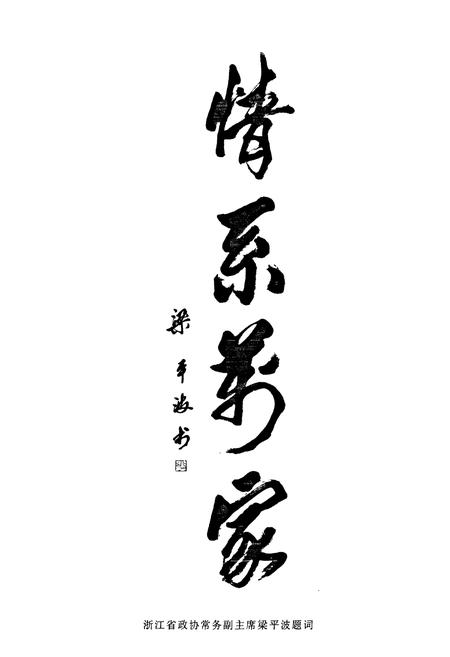 情系萬家
梁平波书
浙江省政协常务副主席梁平波题词